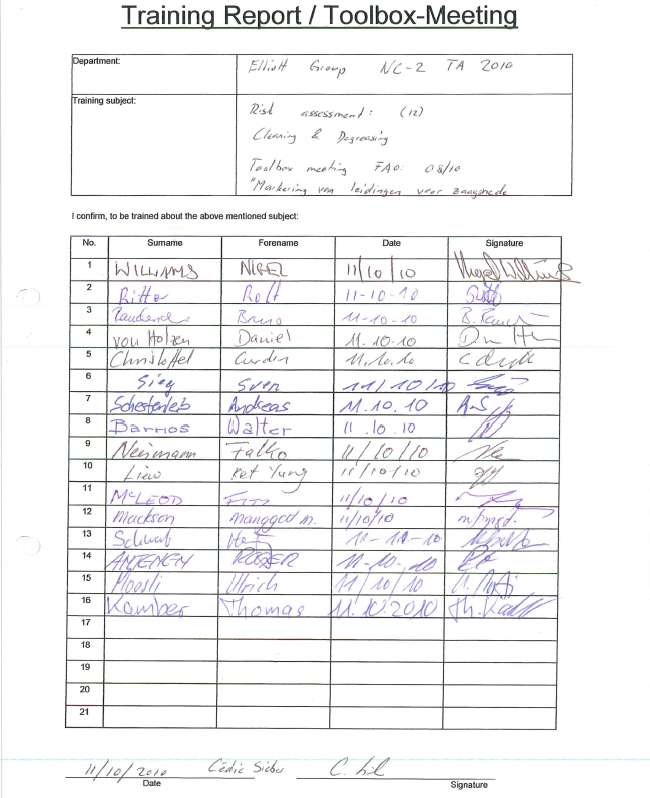 Training Report / Toolbox-Meeting
Department: Elliott Group NC-2 TA 2010
Training subject: Risk assessment: (12)
Cleaning & Degreasing
Toolbox meeting FAO: 08/10
"Markering van leidingen voor zaagsnede
I confirm, to be trained about the above mentioned subject:
No. Surname Forename Date Signature
1 WILLIAMS NIGEL 11/10/10
2 Ritter Rolf 11-10-10
3 Bruno 11-10-10
4 von Holzen Daniel 11.10.10
5 Christoffel Curdin 11.10.10
6 Sieg Sven 11/10/10
7 Andreas 11.10.10
8 Barrios Walter 11.10.10
9 Neumann Falko 11/10/10
10 Liew Ket Yung 11/10/10
11 McLEOD 11/10/10
12 11/10/10
13 Schwab
14 ROGER 11-10-10
15 Ulrich 11/10/10
16 Kamber Thomas 11.10.2010 Th.
17
18
19
20
21
11/10/2010 Cédric C.
Date Signature